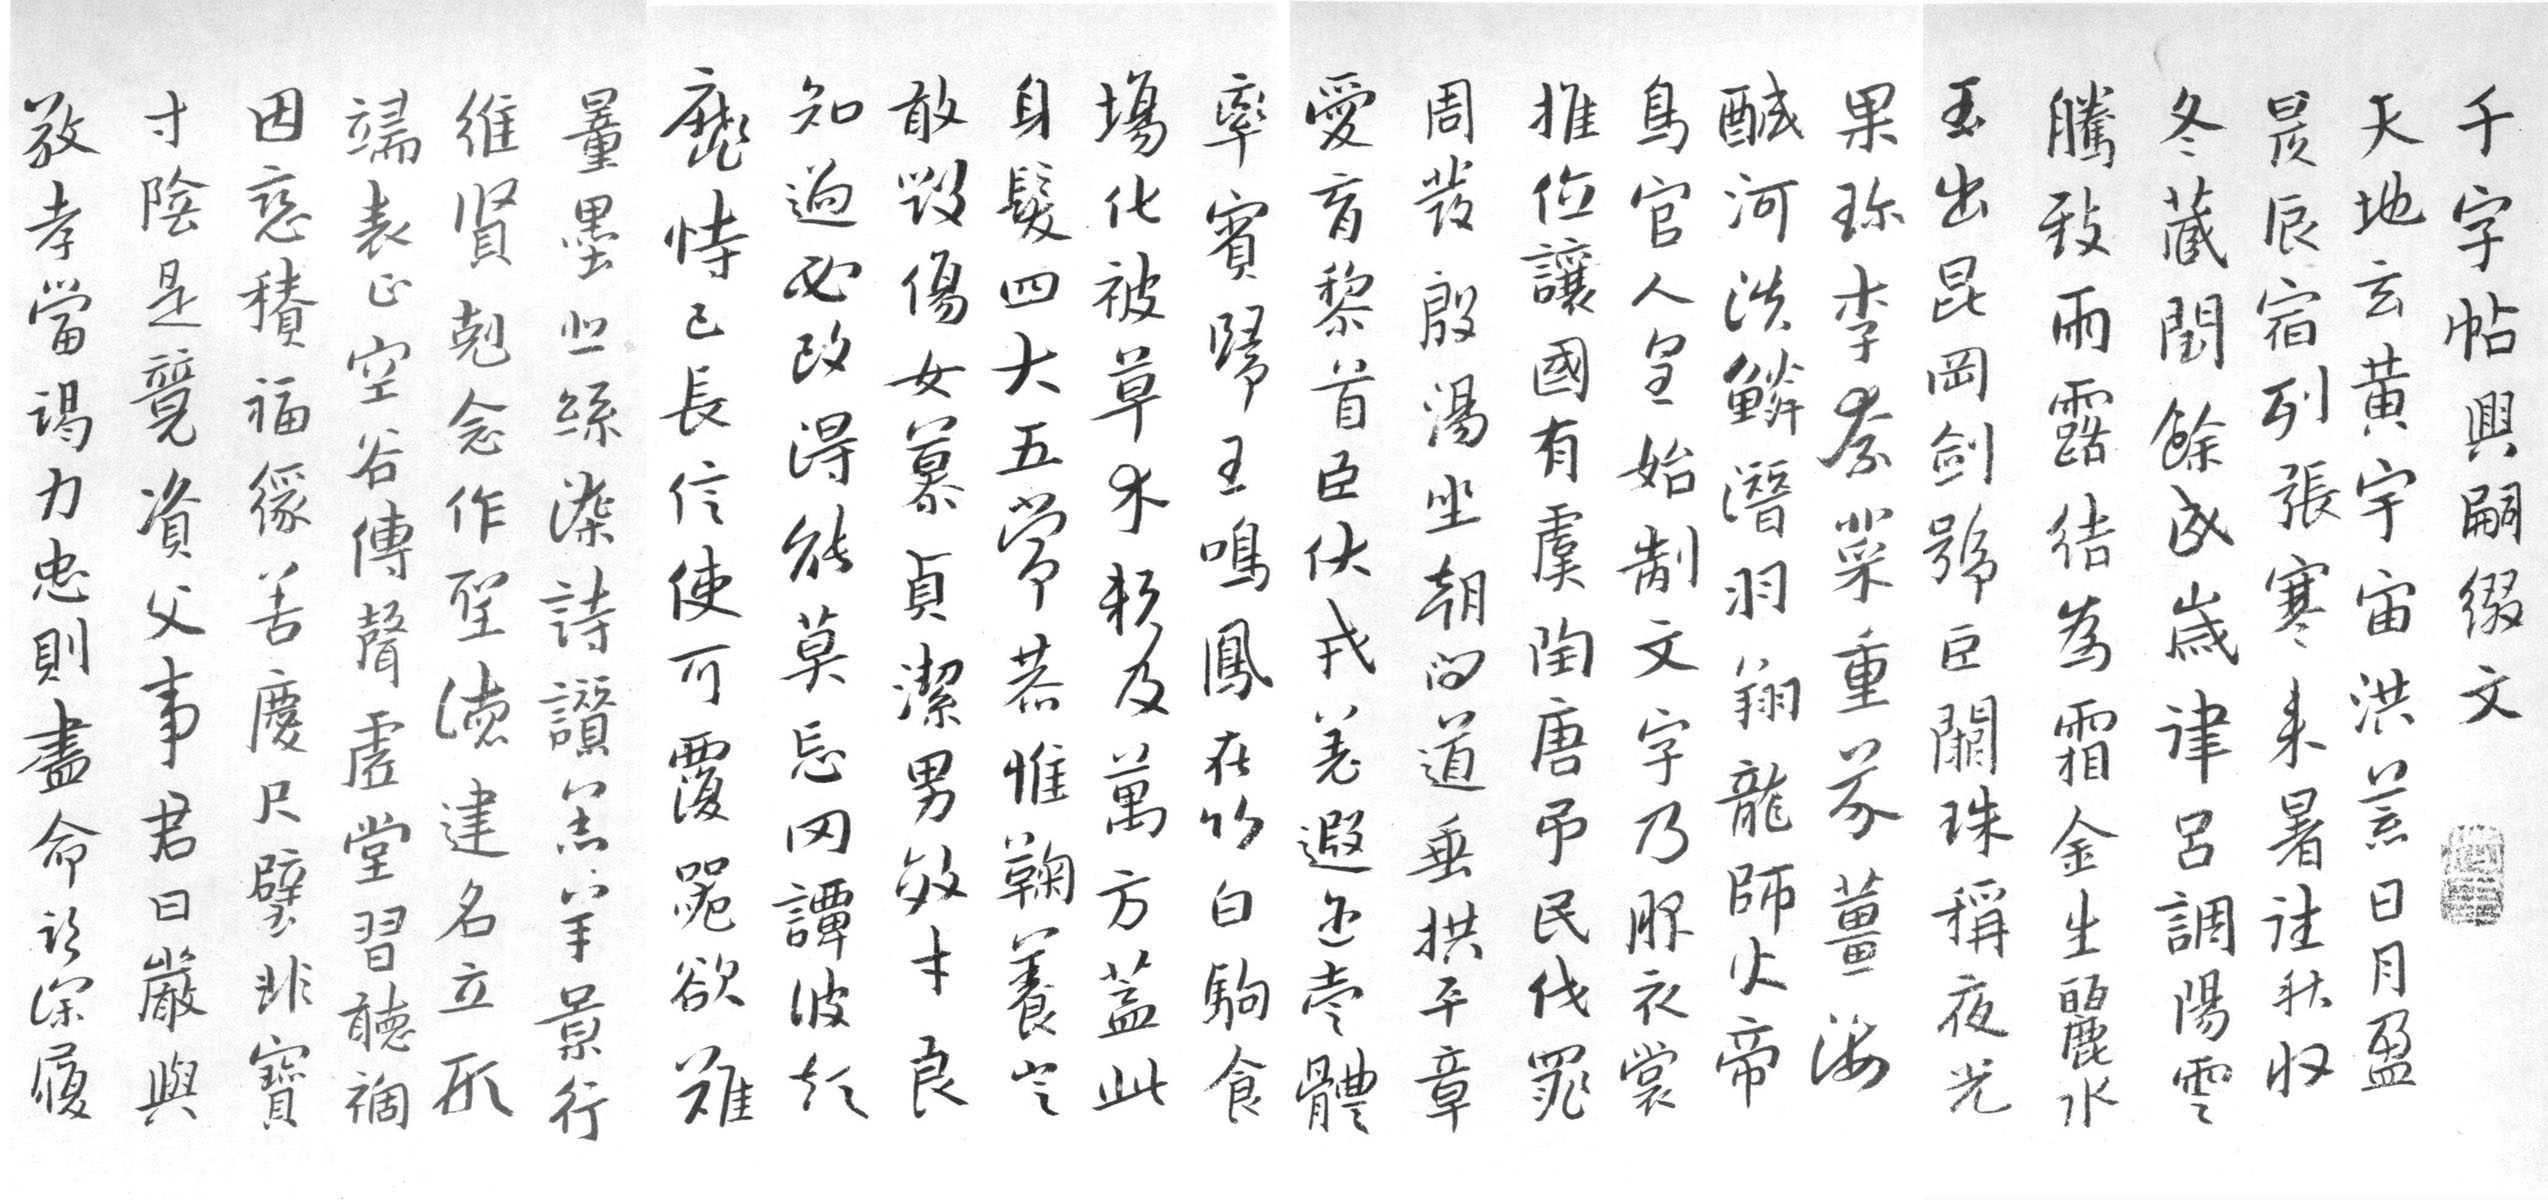 千字帖興嗣綴文
天地玄黃宇宙洪荒日月盈
昃辰宿列張寒来暑往秋収
冬蔵閏餘成歲律呂調陽雲
騰致雨露結為霜金生麗水
玉出昆岡剑號巨闕珠稱夜光
果珎李柰菜重芥薑海
醎河淡鱗潛羽翔龍師火帝
鳥官人皇始制文字乃服衣裳
推位讓國有虞陶唐弔民伐罪
周發殷湯坐朝問道垂拱平章
愛育黎首臣伏戎羌遐迩壹體
率賓歸王鳴鳳在竹白駒食
場化被草木賴及萬方蓋此
身髮四大五常恭惟鞠養豈
敢毀傷女慕貞潔男效才良
知過必改得能莫忘罔譚彼短
靡恃己長信使可覆器欲難
量墨悲絲染詩讚羔羊景行
維賢剋念作聖德建名立形
端表正空谷傳聲虛堂習聽禍
因惡積福緣善慶尺璧非寶
寸陰是競資父事君曰嚴與
敬孝當竭力忠則盡命臨深履